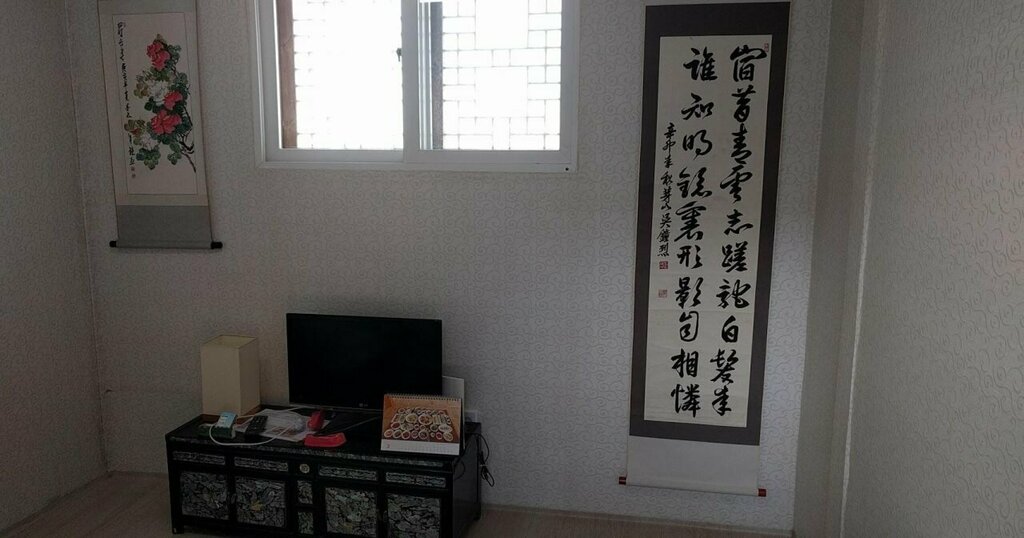 宿昔青雲志蹉跎白髮年
誰知明鏡裏形影自相憐
辛卯 秋 山 吳鐘烈
LG